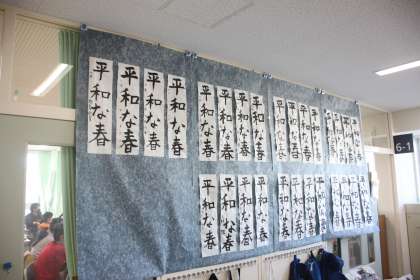 平和な春
平和な春
平和な春
平和な春
平和な春
平和な春
平和な春
平和な春
平和な春
平和な春
平和な春
平和な春
平和な春
平和な春
平和な春
平和な春
平和な春
平和な春
平和な春
平和な春
平和な春
平和な春
平和な春
平和な春
平和な春
平和な春
平和な春
平和な春
6-1